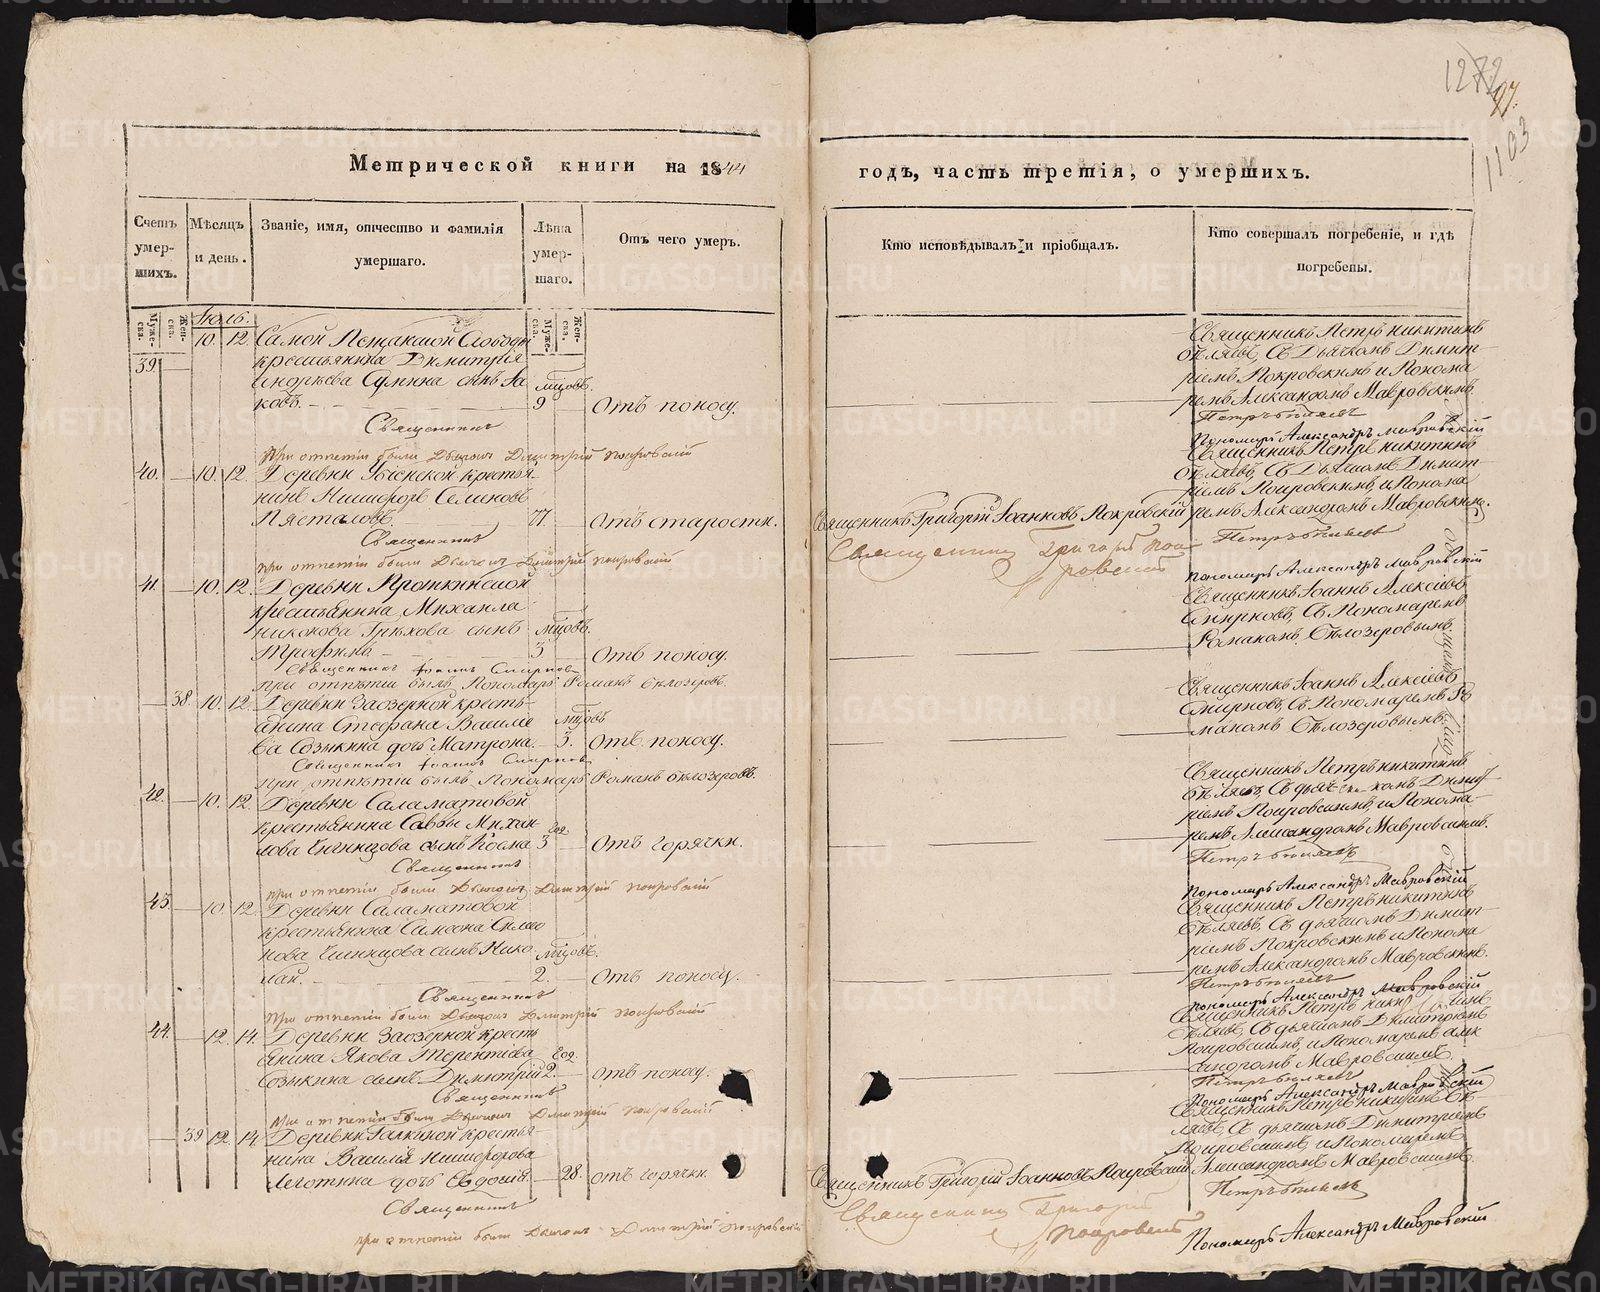 1272
97.
1103
Метрической книги на 1844
годъ, часть третія, о умершихъ.
Счетъ умер-шихъ.
Мѣсяцъ и день.
Званіе, имя, отчество и фамилія умершаго.
Лѣта умер-шаго.
Отъ чего умеръ.
Кто исповѣдывалъ и пріобщалъ.
Кто совершалъ погребеніе, и гдѣ погребены.
Муже-ска.
Жен-ска.
Муже-ска.
Жен-ска.
Іюль.
39 10. 12. Самой Слободы
крестьянина Димитрія
сынъ Іа
ковъ. мцовъ. 9 Отъ поносу.
Священникъ
При отпетіи были Дьячокъ Дмитрій Покровскій
Священникъ Петръ Никитинъ
Бѣляевъ, Съ Дьячкомъ Димит-
ріемъ Покровскимъ и Понома
ремъ Александромъ Мавровскимъ.
Петръ Бѣляевъ
Пономарь Александръ Мавровскій
40. 10. 12. Деревни крестья-
нинъ Никифоръ Семеновъ
77. Отъ старости.
Священникъ
при отпетіи были Дьячокъ Дмитрій Покровскій
Священникъ Григорій Іоанновъ Покровскій
Священникъ Григорій Пок-
ровский
Священникъ Петръ Никитинъ
Бѣляевъ, Съ Дьячкомъ Димит-
ріемъ Покровскимъ, и Понома
ремъ Александромъ Мавровскимъ.
Петръ Бѣляевъ
Пономарь Александръ Мавровскій
41. 10. 12. Деревни
крестьянина Михаила
Никонова Грѣхова сынъ
Трофимъ мцовъ. 3 Отъ поносу.
Священникъ Іоаннъ Смирновъ
при отпѣтіи былъ Пономарь Романъ Бѣлозеровъ.
Священникъ Іоаннъ Алексѣевъ
Смирновъ, Съ Пономаремъ
Романомъ Бѣлозеровымъ.
38. 10. 12. Деревни Заозерной кресть-
янина Стефана Василье
ва Созыкина дочь Матрона. мцовъ 3. Отъ поносу.
Священникъ Іоаннъ Смирновъ
при отпѣтіи былъ Пономарь Романъ Бѣлозеровъ.
Священникъ Іоаннъ Алексѣевъ
Смирновъ, Съ Пономаремъ Ро
маномъ Бѣлозеровымъ.
42. 10. 12. Деревни Саламатовой
крестьянина Савы Михаи
лова сынъ Козма 3 год. Отъ горячки.
Священникъ
при отпетіи были Дьячокъ Дмитрій Покровскій
Священникъ Петръ Никитинъ
Бѣляевъ, Съ дьячкомъ Димит
ріемъ Покровскимъ, и Понома-
ремъ Александромъ Мавровскимъ.
Петръ Бѣляевъ
Пономарь Александръ Мавровскій
43. 10. 12. Деревни Саламатовой
крестьянина Симеона
нова сынъ Нико
лай. мцовъ. 2. Отъ поносу.
Священникъ
при отпетіи были Дьячокъ Дмитрій Покровскій
Священникъ Петръ Никитинъ
Бѣляевъ, Съ дьячкомъ Димит-
ріемъ Покровскимъ и Понома
ремъ Александромъ Мавровскимъ.
Петръ Бѣляевъ
Пономарь Александръ Мавровскій
44. 12. 14. Деревни Заозерной кресть
янина Якова Терентіева
Созыкина сынъ Димитрій год. 2. отъ поносу.
Священникъ
При отпетіи были Дьячокъ Дмитрій Покровскій
Священникъ Петръ Никитинъ
Бѣляевъ, Съ дьячкомъ Димитріемъ
Покровскимъ, и Пономаремъ Алек
сандромъ Мавровскимъ.
Петръ Бѣляевъ
Пономарь Александръ Мавровскій
39 12. 14. Деревни Галкиной крестья-
нина Василія Никифорова
дочь Евдокія. 28. отъ горячки.
Священникъ
при отпетіи были Дьячокъ Дмитрій Покровскій
Священникъ Григорій Іоанновъ Покровскій
Священникъ Григорій
Покровский
Священникъ Петръ Никитинъ Бѣ-
ляевъ, Съ дьячкомъ Димитріемъ
Покровскимъ и Пономаремъ
Александромъ Мавровскимъ.
Петръ Бѣляевъ
Пономарь Александръ Мавровскій
METRIKI.GASO-URAL.RU